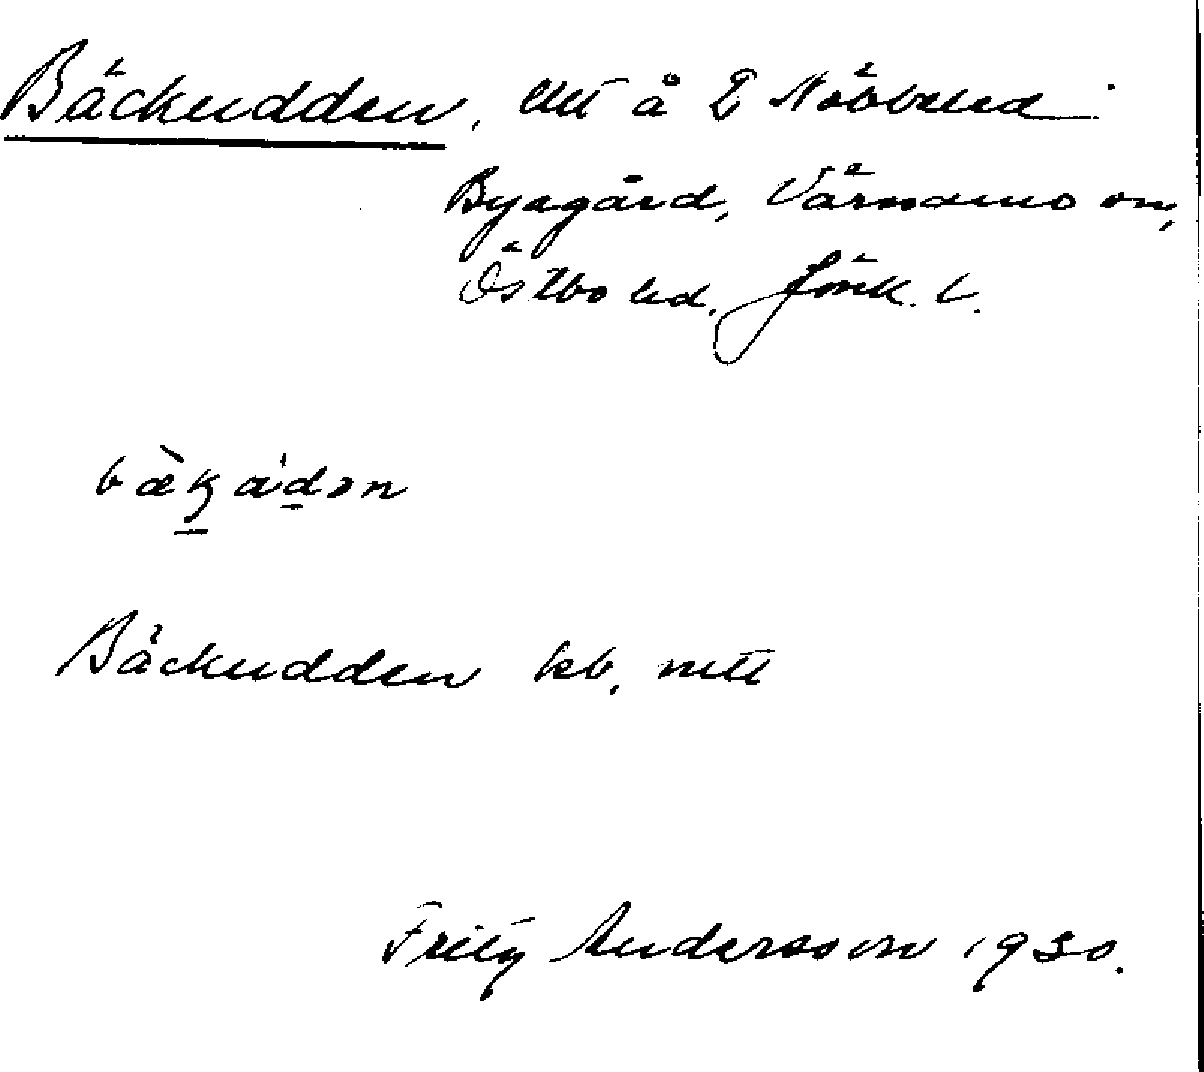 Bäckudden, utt å 2 Nöbbeled
Byagård, Värnamo sn,
Östbo hd. Jönk. l.
Bäckudden kb, nett
Fritz Andersson 1930.